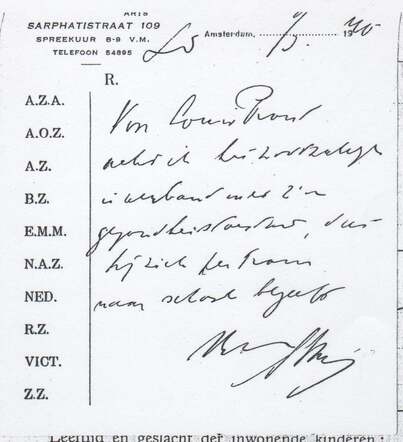 ARTS
SARPHATISTRAAT 109
SPREEKUUR 8-9 V.M.
TELEFOON 54895
Amsterdam, 9/5 1940
R.
A.Z.A.
A.O.Z.
A.Z.
B.Z.
E.M.M.
N.A.Z.
NED.
R.Z.
VICT.
Z.Z.
Van Louis
acht ik het noodzakelijk
in verband met z'n
gezondheidstoestand, dat
hij zich per tram
naar school begeeft
Leeftijd en geslacht der inwonende kinderen: